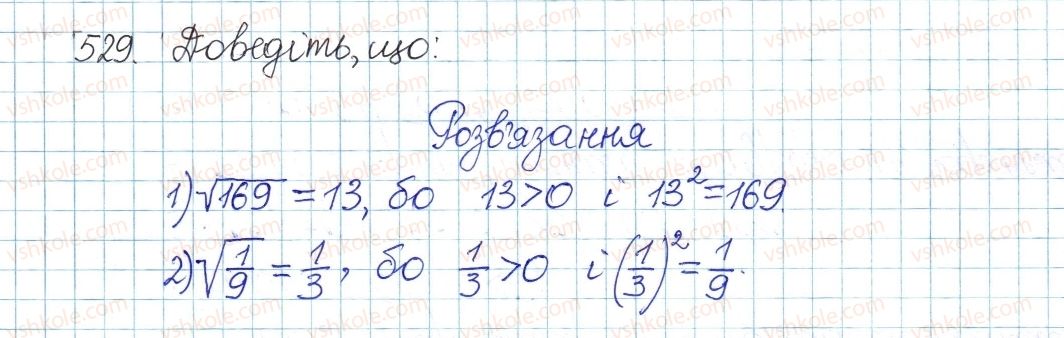 529. Доведіть, що:
Розв'язання
1) √169 = 13, бо 13 > 0 і 13² = 169.
2) √(1/9) = 1/3, бо 1/3 > 0 і (1/3)² = 1/9.
vshkole.com